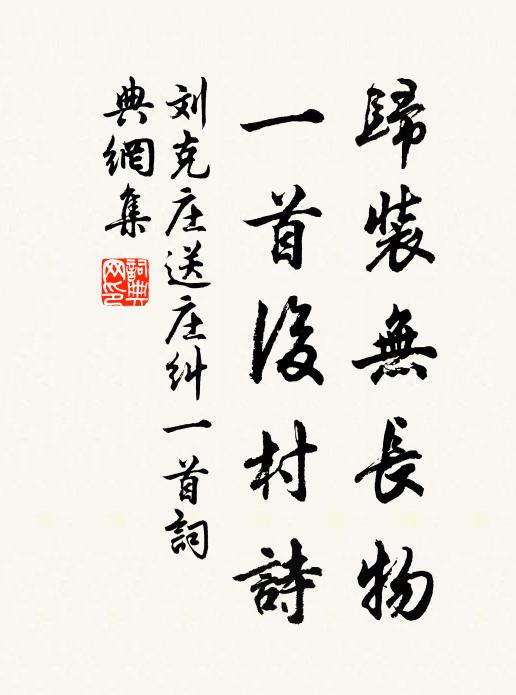 歸裝無長物
一首後村詩
刘克庄送庄糾一首詞
典網集
詞典
网印